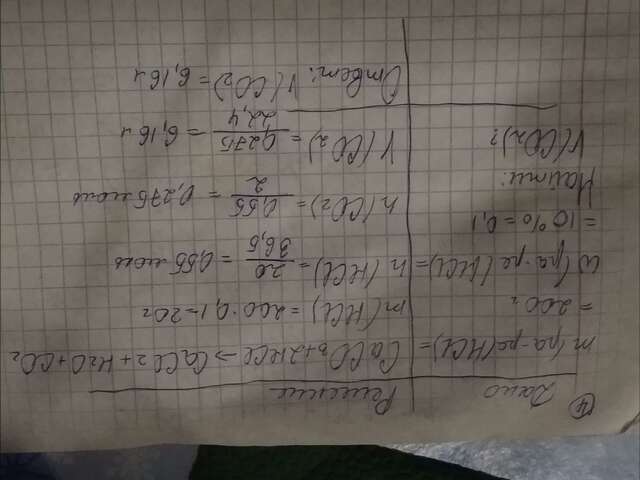 ④ Дано
m(ра-ра(HCl)=
= 200г
w(ра-ра(HCl)=
= 10% = 0,1
Найти:
V(CO2)?
Решение
CaCO3+2HCl → CaCl2+H2O+CO2
m(HCl) = 200·0,1=20г
n(HCl) = 20/36,5 = 0,55 моль
n(CO2) = 0,55/2 = 0,275 моль
V(CO2) = 0,275/22,4 = 6,16л
Ответ: V(CO2) = 6,16л